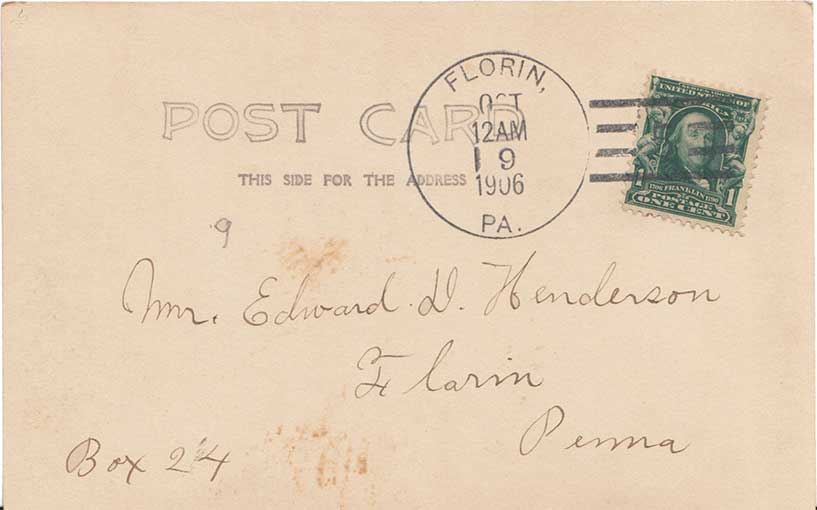 POST CARD
THIS SIDE FOR THE ADDRESS
FLORIN,
OCT
12AM
19
1906
PA.
UNITED STATES OF
AMERICA
1 1706 FRANKLIN 1790 1
POSTAGE
ONE CENT
9
Mr. Edward. D. Henderson
Florin
Penna
Box 24